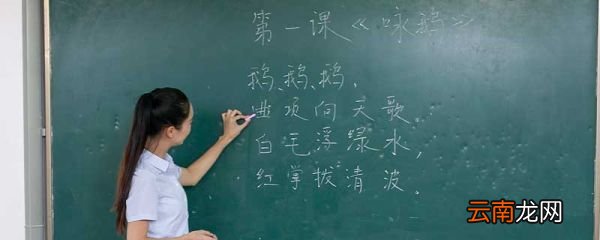 第一课《咏鹅》
鹅、鹅、鹅,
曲项向天歌。
白毛浮绿水,
红掌拨清波.
云南龙网